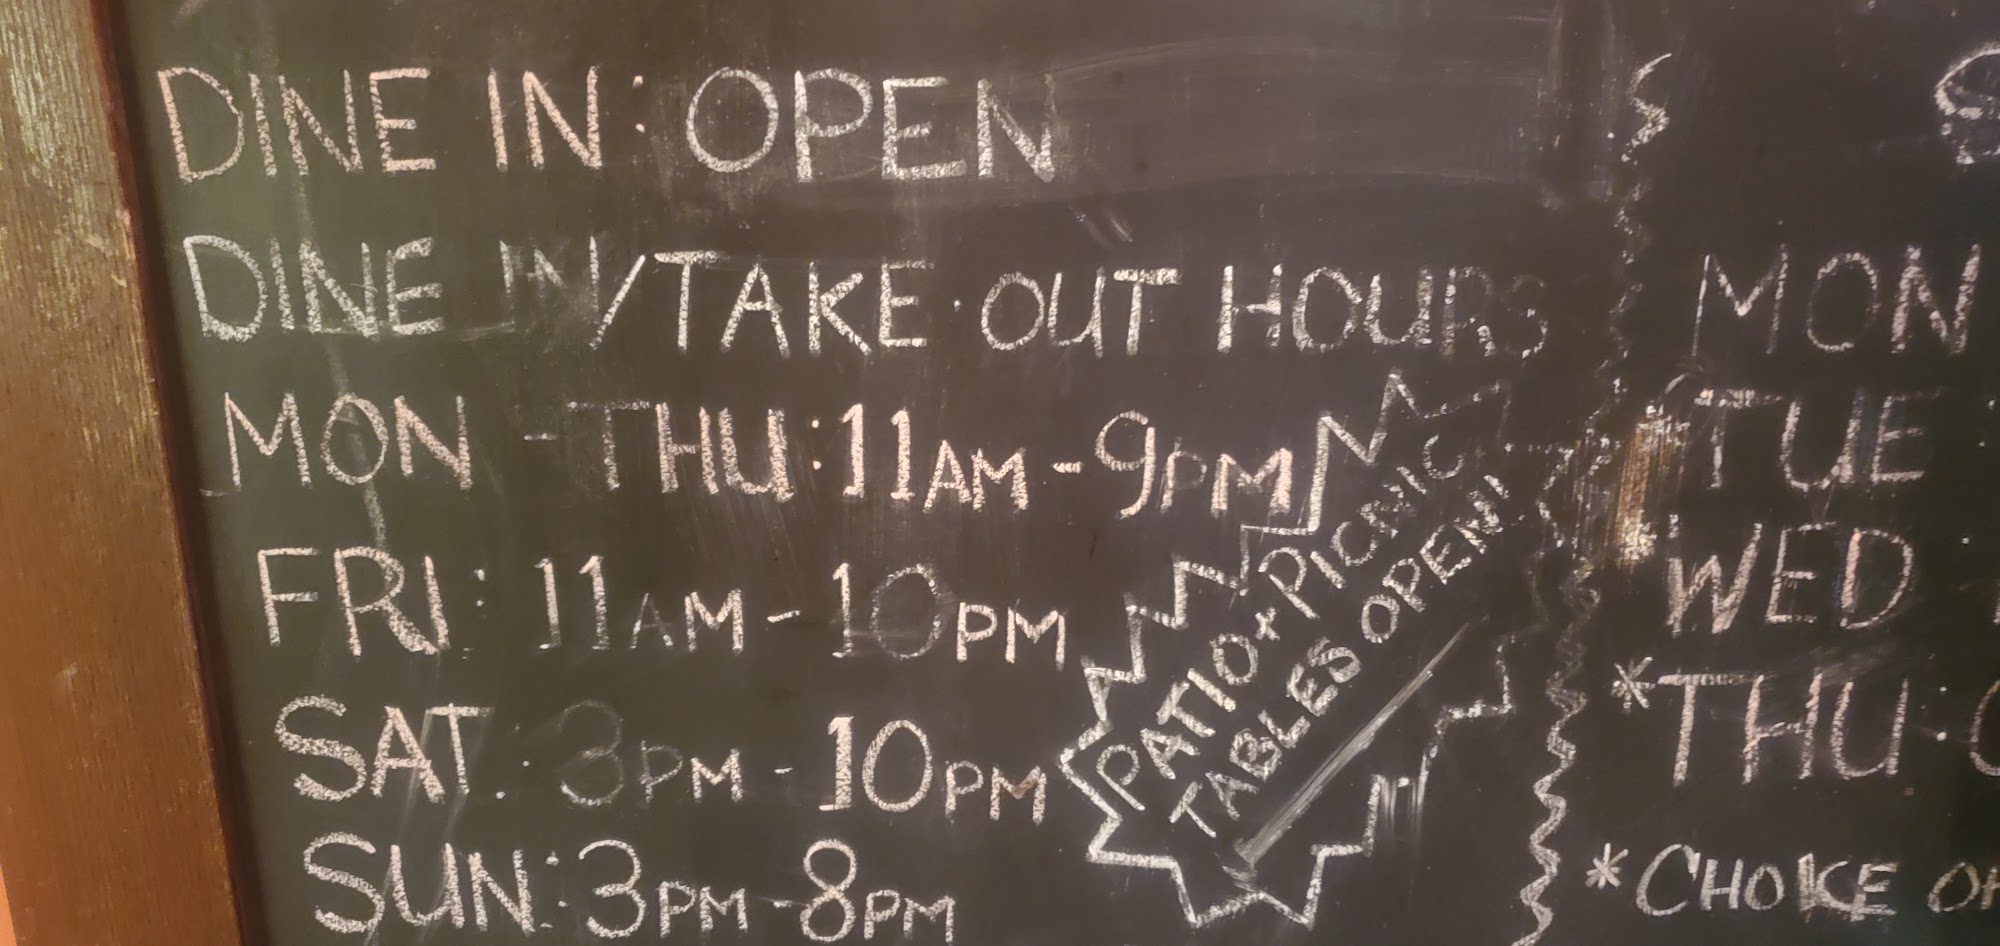 DINE IN: OPEN
DINE IN/TAKE OUT HOURS
MON - THU: 11AM - 9PM
FRI: 11AM - 10PM
SAT: 3PM - 10PM
SUN: 3PM - 8PM
PATIO + PICNIC
TABLES OPEN!
MON
TUE
WED
*THU:
*CHOKE